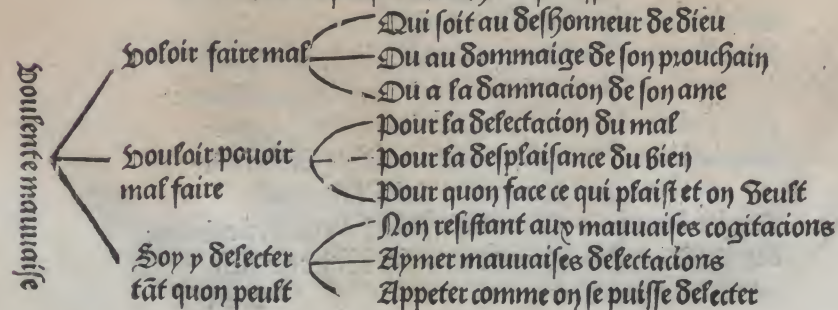 Voulente mauuaise
Voloir faire mal
Qui soit au deshonneur de dieu
Ou au dommaige de son prouchain
Ou a la damnacion de son ame
Vouloir pouoir
mal faire
Pour la delectacion du mal
Pour la desplaisance du bien
Pour quon face ce qui plaist et on veult
Soy y delecter
tãt quon peult
Non resistant aux mauuaises cogitacions
Aymer mauuaises delectacions
Appeter comme on se puisse delecter